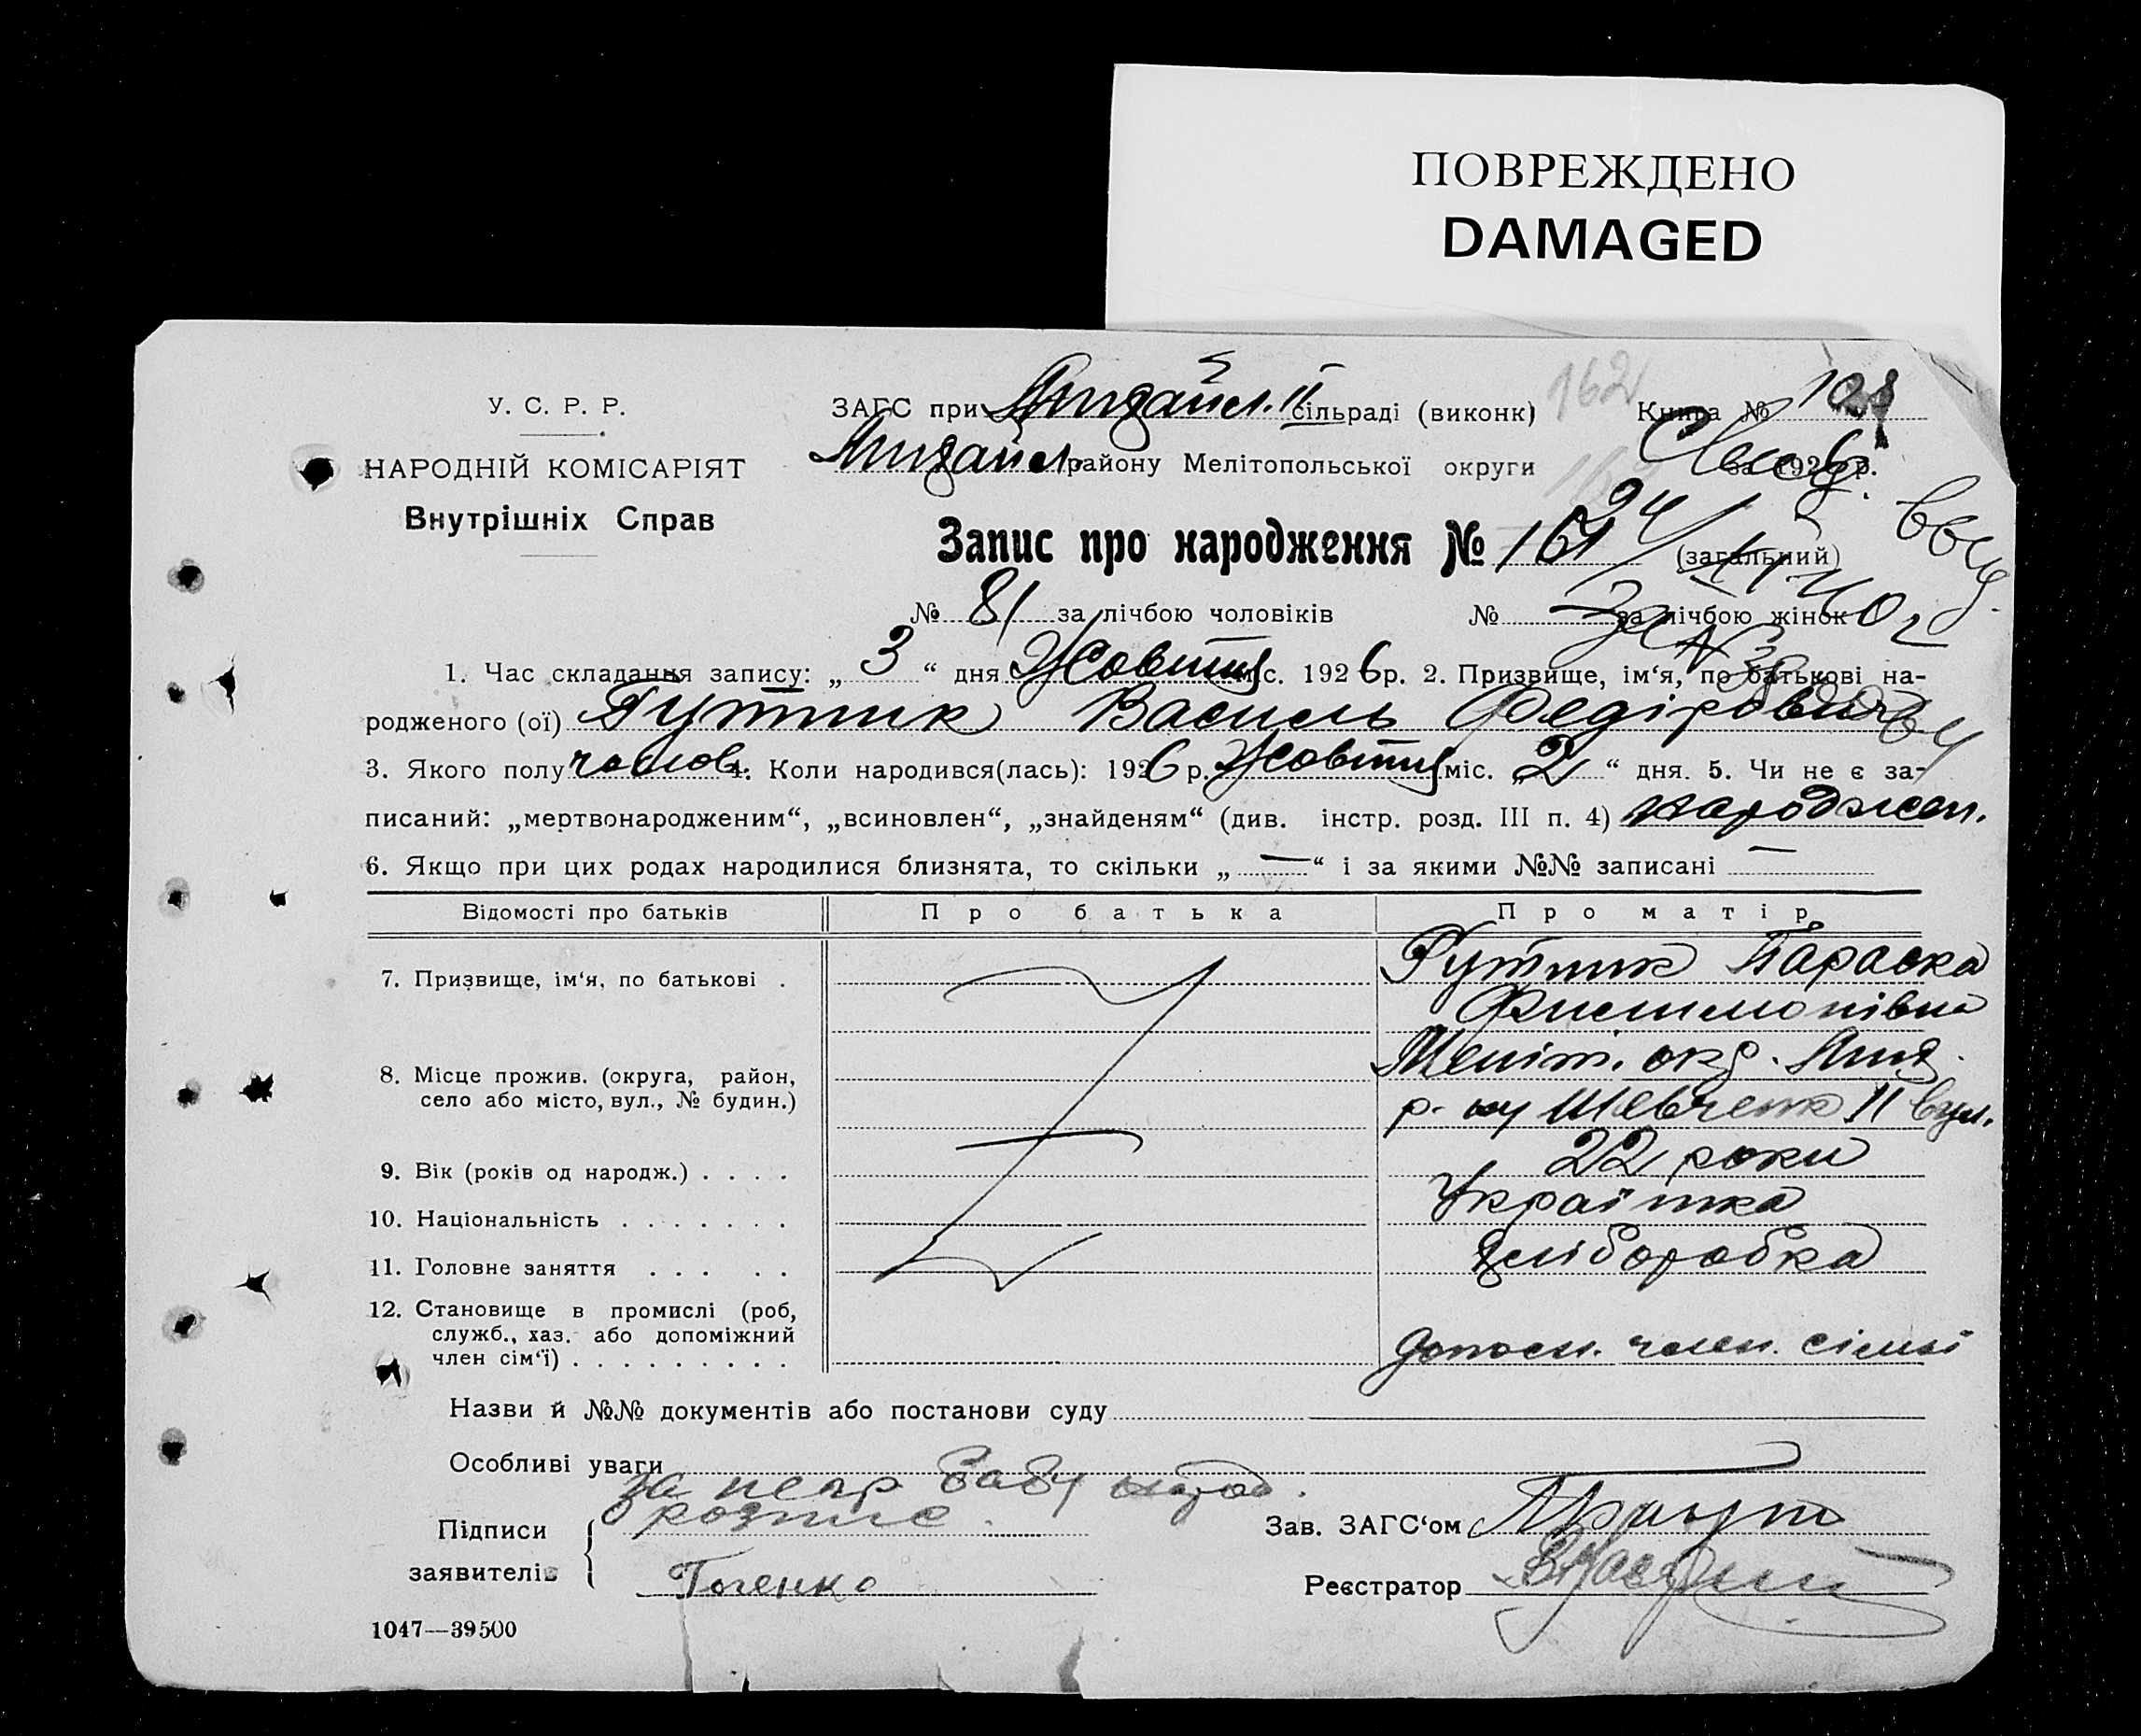 ПОВРЕЖДЕНО
DAMAGED
У. С. Р. Р.
НАРОДНІЙ КОМІСАРІЯТ
Внутрішніх Справ
ЗАГС при Михайл. ІІ сільраді (виконк) 162 Книга №
Михайл. району Мелітопольської округи за 1926 р.
Запис про народження № 161 (загальний)
№ 81 за лічбою чоловіків № за лічбою жінок
1. Час складання запису: „ 3 “ дня Жовтня міс. 1926 р. 2. Призвище, ім‘я, по батькові на-
родженого (ої) Гутник Василь Федірович
3. Якого полу чолов. 4. Коли народився(лась): 1926 р. Жовтня міс. „ 2 “ дня. 5. Чи не є за-
писаний: „мертвонародженим“, „всиновлен“, „знайденям“ (див. інстр. розд. III п. 4) народжен.
6. Якщо при цих родах народилися близнята, то скільки „ — “ і за якими №№ записані —
Відомості про батьків Про батька Про матір
7. Призвище, ім‘я, по батькові . Гутник Параска
Филимонівна
8. Місце прожив. (округа, район, Меліт. окр. Мих.
село або місто, вул., № будин.) р-ну Шевченк ІІ вул.
9. Вік (років од народж.) . . . . 22 роки
10. Національність . . . . . . . Українка
11. Головне заняття . . . . . Хліборобка
12. Становище в промислі (роб,
служб., хаз. або допоміжний
член сім‘ї) . . . . . . . . . допом. член. сімї
Назви й №№ документів або постанови суду
Особливі уваги
за непр бабу
Підписи розпис. Зав. ЗАГС‘ом
заявителів Реєстратор
1047—39500